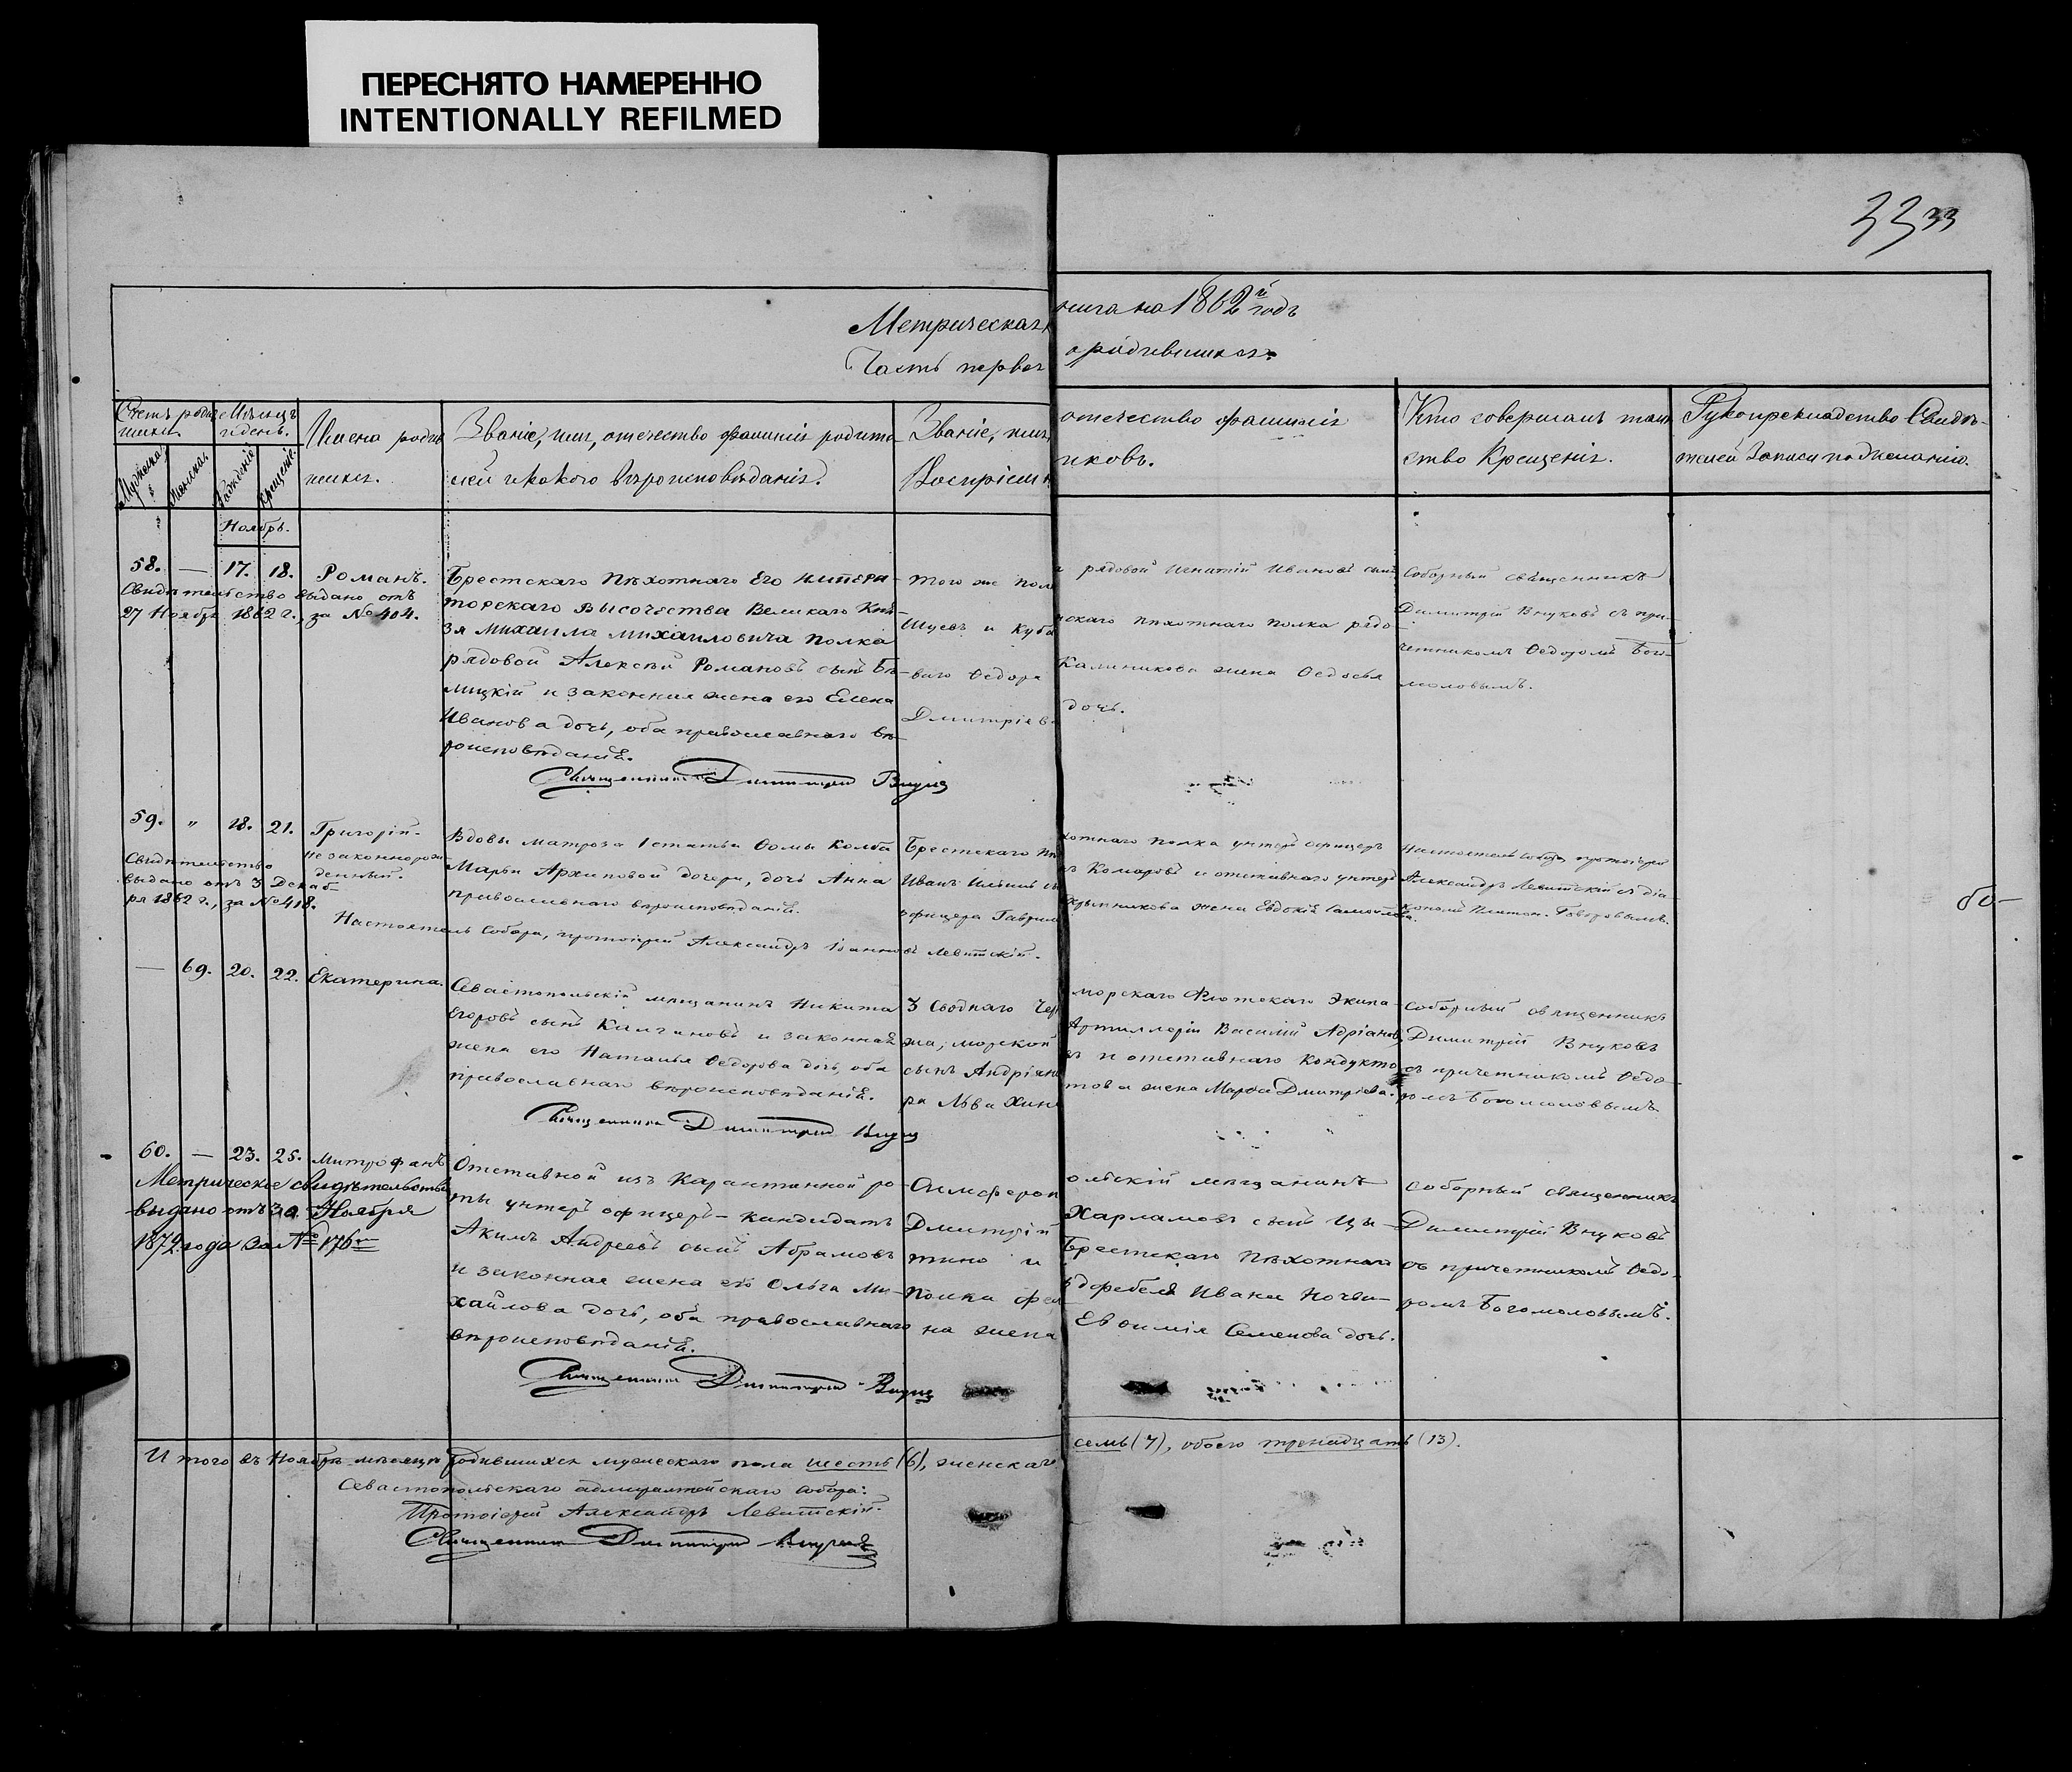 ПЕРЕСНЯТО НАМЕРЕННО
INTENTIONALLY REFILMED
33 33
Метрическая книга на 1862й годъ
Часть первая о родившихся.
Счетъ родившихся
Мѣсяцъ и день.
Мужеска
Женска
Рожденіе
Крещеніе
Имена родившихся.
Званіе, имя, отечество фамилія родителей и какого вѣроисповѣданія.
Званіе, имя, отечество фамилія
Воспріемниковъ.
Кто совершалъ таинство Крещенія.
Рукоприкладство Свидѣтелей Записи по желанію.
Ноябрь.
58. — 17. 18. Романъ.
Свидѣтельство выдано отъ
27 Ноября 1862 г., за № 404.
Брестскаго Пѣхотнаго Его Императорскаго Высочества Великаго Князя Михаила Михаиловича полка
рядовой Алексѣй Романовъ сынъ Бѣлицкій и законная жена его Елена
Иванова дочь, оба православнаго вѣроисповѣданія.
того же полка рядовой Игнатій Ивановъ сынъ
Шуевъ и Кубанскаго пѣхотнаго полка рядоваго Ѳедора Калиникова жена Ѳедосья
Дмитріева дочь.
Соборный священникъ
Димитрій Внуковъ съ причетникомъ Ѳедоромъ Богомоловымъ.
Священникъ Димитрій Внуковъ
59. " 18. 21. Григорій
незаконнорожденный.
Свидѣтельство
выдано отъ 3 Декабря 1862 г., за № 418.
Вдовы матроза 1 статьи Ѳомы Колба
Марьи Архиповой дочери, дочь Анна
православнаго вѣроисповѣданія.
Брестскаго пѣхотнаго полка унтеръ офицеръ
Иванъ Ильинъ сынъ Комаровъ и отставнаго унтеръ
офицера Гаврила жена Евдокія Самойлова.
Настоятель Собора, протоіерей
Александръ Левитскій съ діакономъ Говоровымъ.
Настоятель Собора, протоіерей Александръ Іоанновъ Левитскій.
— 69. 20. 22. Екатерина.
Севастопольскій мѣщанинъ Никита
Егоровъ сынъ Калчиновъ и законная
жена его Наталья Ѳедорова дочь, оба
православнаго вѣроисповѣданія.
3 Своднаго Черноморскаго Флотскаго Экипажа, морской Артиллеріи Василій Адріановъ
сынъ и отставнаго Кондуктора Льва жена Марѳа Дмитріева.
Соборный священникъ
Димитрій Внуковъ
съ причетникомъ Ѳедоромъ Богомоловымъ.
Священникъ Димитрій Внуковъ
60. — 23. 25. Митрофанъ
Метрическое свидѣтельство
выдано отъ 30 Ноября
1872 года За № 176
Отставной изъ Карантинной роты унтеръ офицеръ – кандидатъ
Акимъ Андреевъ сынъ Абрамовъ
и законная жена его Ольга Михайлова дочь, оба православнаго
вѣроисповѣданія.
Симферопольскій мѣщанинъ
Дмитрій Харламовъ сынъ
и Брестскаго Пѣхотнаго
полка фельдфебеля Ивана
жена Евѳимія Семенова дочь.
Соборный священникъ
Димитрій Внуковъ
съ причетникомъ Ѳедоромъ Богомоловымъ.
Священникъ Димитрій Внуковъ
Итого въ Ноябрѣ мѣсяцѣ родившихся мужескаго пола шесть (6), женскаго семь (7), обоего тринадцать (13).
Севастопольскаго адмиралтейскаго Собора:
Протоіерей Александръ Левитскій.
Священникъ Димитрій Внуковъ